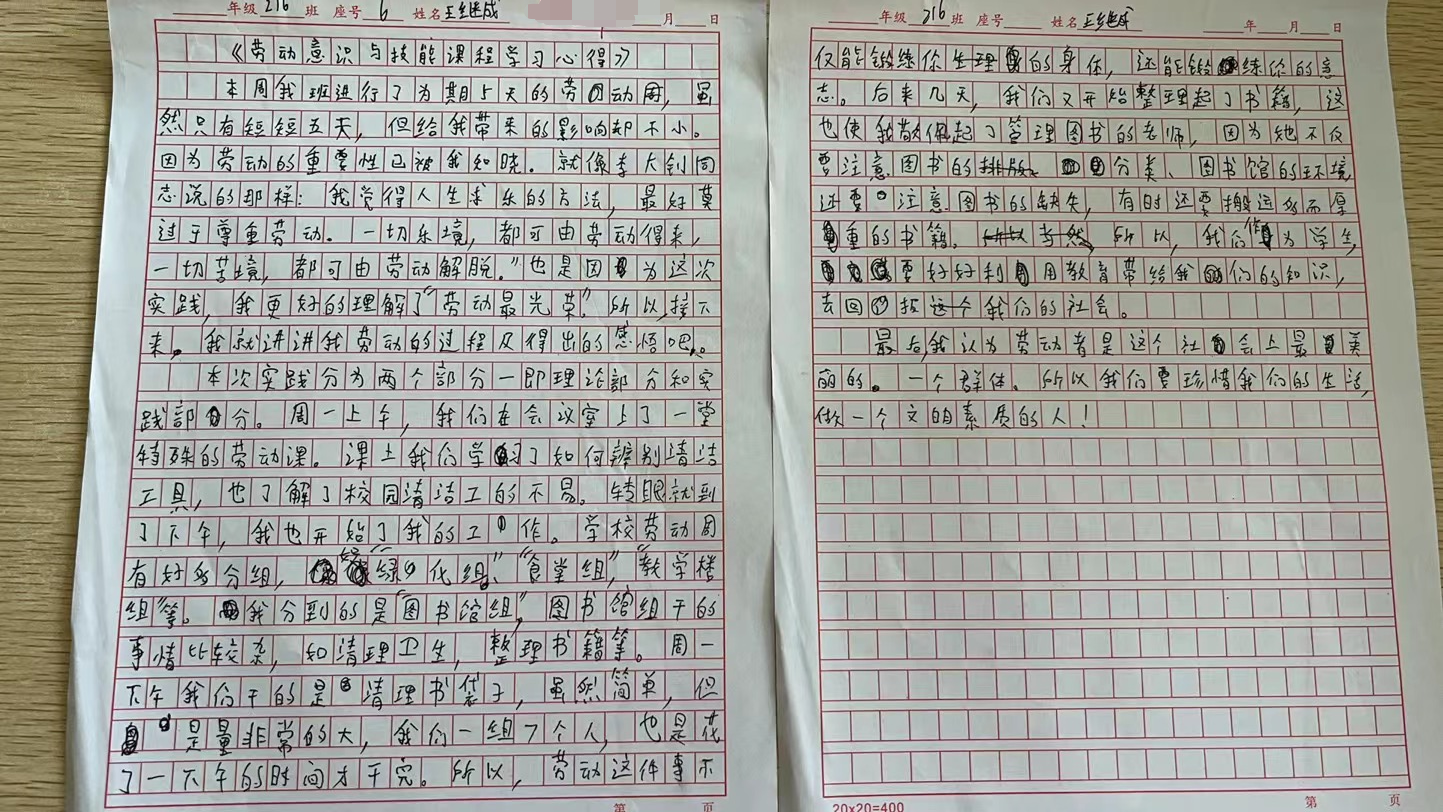 年级 216 班 座号 6 姓名 王继成 月 日
《劳动意识与技能课程学习心得》
本周我班进行了为期5天的劳动周，虽
然只有短短五天，但给我带来的影响却不小。
因为劳动的重要性已被我知晓。就像李大钊同
志说的那样：我觉得人生求乐的方法，最好莫
过于尊重劳动。一切乐境，都可由劳动得来，
一切苦境，都可由劳动解脱。”也是因为这次
实践，我更好的理解了“劳动最光荣”。所以，接下
来，我就讲讲我劳动的过程及得出的感悟吧。
本次实践分为两个部分一即理论部分和实
践部分。周一上午，我们在会议室上了一堂
特殊的劳动课。课上我们学习了如何辨别清洁
工具，也了解了校园清洁工的不易。转眼就到
了下午，我也开始了我的工作。学校劳动周
有好多分组，好“绿化组”、“食堂组”，“教学楼
组”等。我分到的是“图书馆组”，图书馆组干的
事情比较杂，如清理卫生，整理书籍等。周一
下午我们干的是清理书袋子，虽然简单，但
是量非常的大，我们一组7个人，也是花
了一下午的时间才干完。所以，劳动这件事不
第 页
年级 216 班 座号 姓名 王继成 年 月 日
仅能锻练你生理的身体，还能锻练你的意
志。后来几天，我们又开始整理起了书籍，这
也使我敬佩起了管理图书的老师，因为她不仅
要注意图书的排版、分类、图书馆的环境
还要注意图书的缺失，有时还要搬运多而厚
重的书籍。所以，我们作为学生，
要好好利用教育带给我们的知识，
去回报这个我们的社会。
最后，我认为劳动者是这个社会上最美
丽的。一个群体。所以我们要珍惜我们的生活，
做一个文明素质的人！
20×20=400 第 页